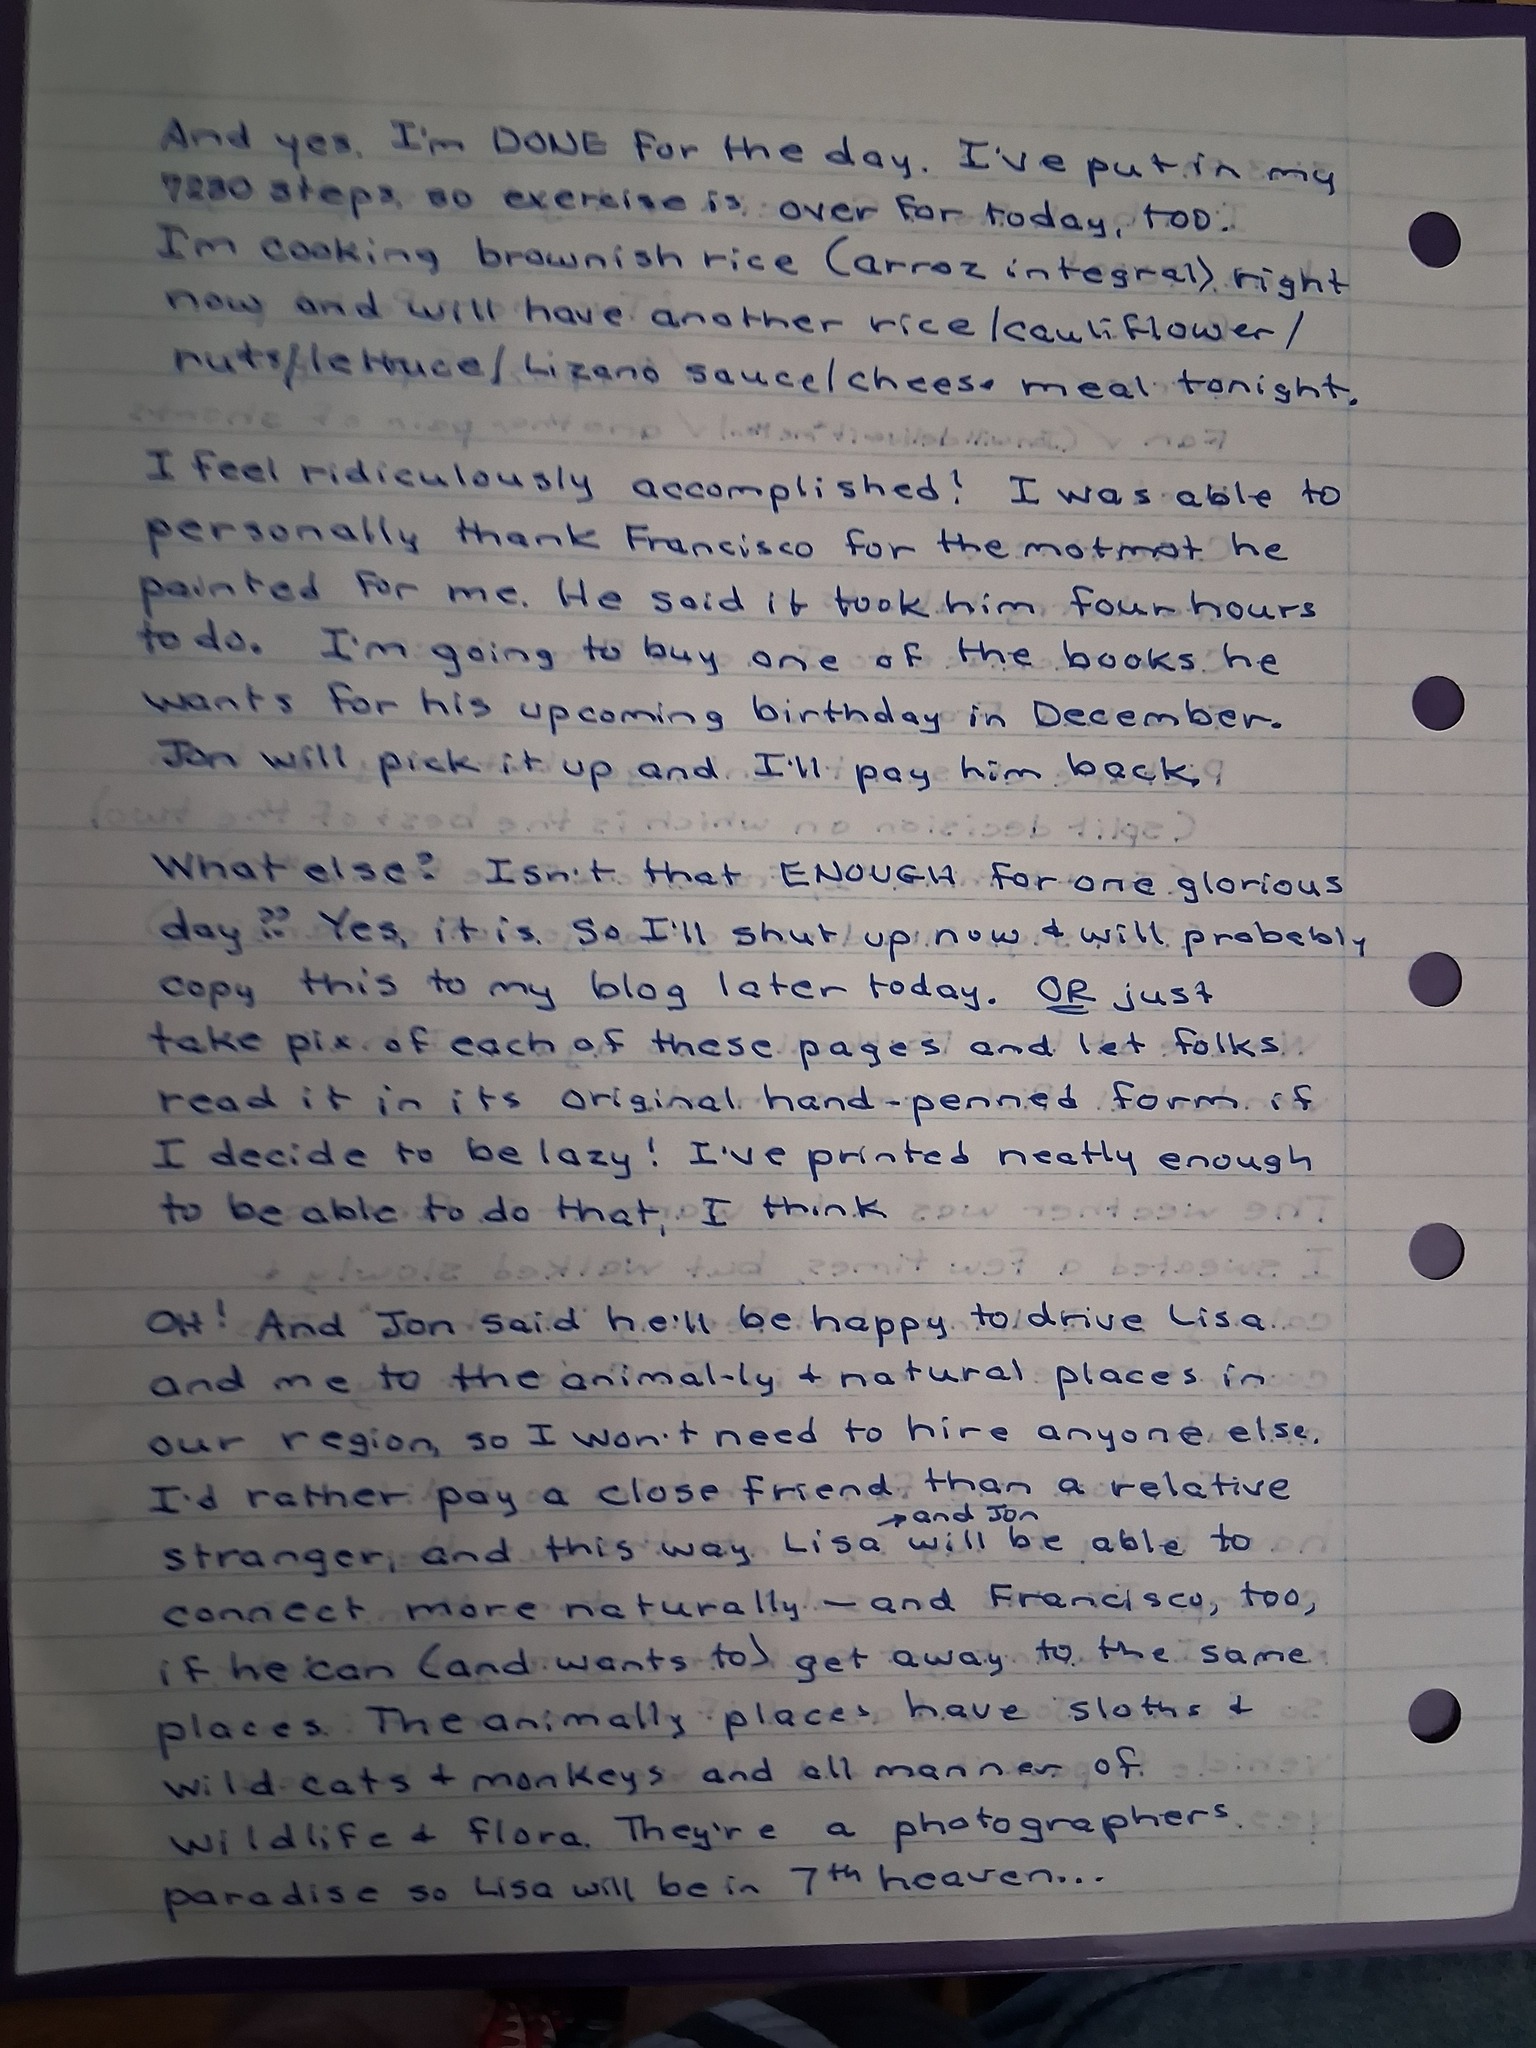 And yes, I'm DONE for the day. I've put in my
7230 steps, so exercise is over for today, too.
I'm cooking brownish rice (arroz integral) right
now and will have another rice/cauliflower/
nuts/lettuce/Lizano sauce/cheese meal tonight.
I feel ridiculously accomplished! I was able to
personally thank Francisco for the motmot he
painted for me. He said it took him four hours
to do. I'm going to buy one of the books he
wants for his upcoming birthday in December.
Jon will pick it up and I'll pay him back.
What else? Isn't that ENOUGH for one glorious
day?? Yes, it is. So I'll shut up now & will probebly
copy this to my blog later today. OR just
take pix of each of these pages and let folks
read it in its original hand-penned form if
I decide to be lazy! I've printed neatly enough
to be able to do that, I think
OH! And Jon said he'll be happy to drive Lisa
and me to the animal-ly & natural places in
our region, so I won't need to hire anyone else.
I'd rather pay a close friend than a relative
→ and Jon
stranger, and this way Lisa will be able to
connect more naturally — and Francisco, too,
if he can (and wants to) get away to the same
places. The animally places have sloths &
wild cats & monkeys and all manner of
wildlife & flora. They're a photographers
paradise so Lisa will be in 7th heaven...